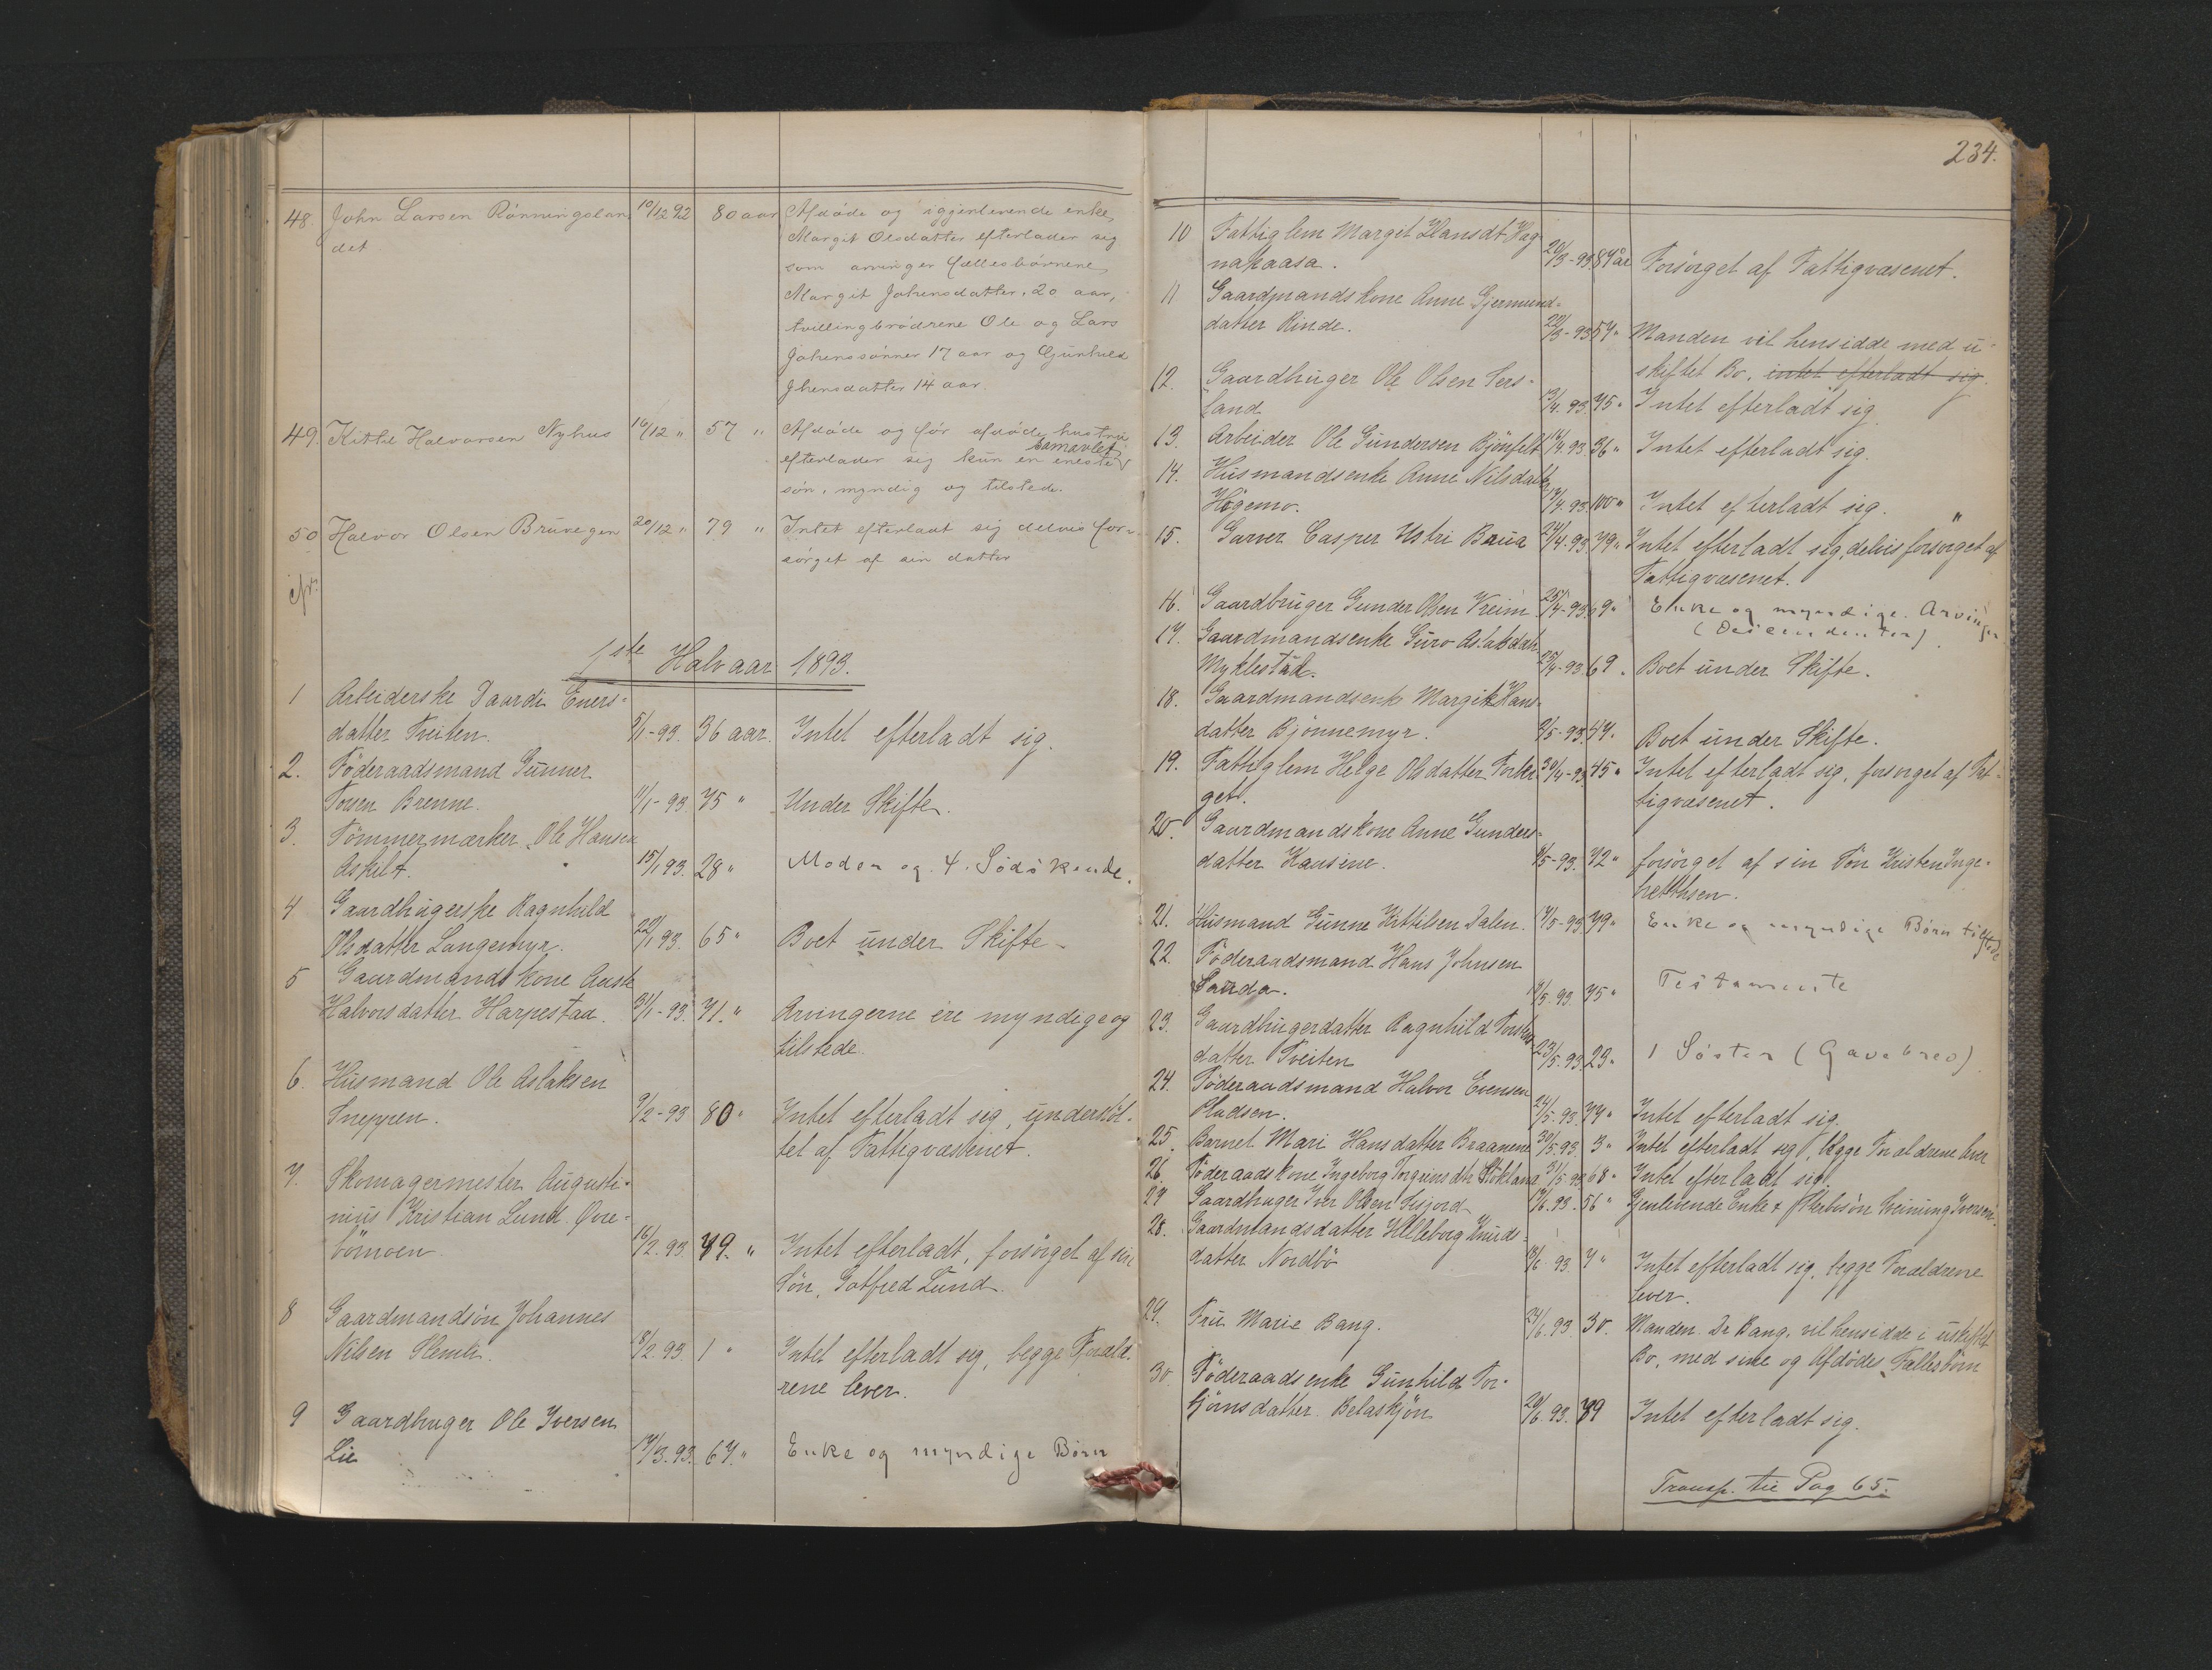 48. John Larsen Rönningslan 10/12 92 80 aar Afdöde og igjenlevende enke,
det Margit Olsdatter efterlader sig
som arvinger fællesbörnene
Margit Johensdatter 20 aar,
tvillingbrödrene Ole og Lars
Johenssönner 17 aar og Gunhild
Jhensdatter 14 aar.
49. Kittil Halvorsen Nyhus 16/12 " 57 " Afdöde og för afdöde hustru
samavlet
efterlader sig kun en eneste
sön, myndig og tilstede.
50 Halvor Olsen Bruvegen 20/12 " 79 " Intet efterladt sig delvis for-
sörget af sin datter
1ste Halvaar 1893.
1 Arbeiderske Taardi Eivers-
datter Tveiten. 5/1-93. 36 aar. Intet efterladt sig.
2. Föderaadsmand Gunner
Brenne. 11/1-93. 75 " Under Skifte.
3 Tömmermærker Ole Hansen
Askilt. 15/1 93. 28 " Moder og 4 Södskende.
4 Gaardbrugerske Ragnhild
Olsdatter Langemyr. 22/1 93. 65 " Boet under Skifte
5 Gaardmandskone Aaste
Halvorsdatter Harpestad. 31/1-93. 71. " Arvingerne ere myndige og
tilstede.
6. Husmand Ole Aslaksen
Sneppen. 9/2-93 80 " Intet efterladt sig, understöt-
tet af Fattigvæsenet.
7. Skomagermester Augusti-
nius Kristian Lund. Övre-
bömoen 16/2.93. 79. " Intet efterladt, forsörget af sin
Sön, Gotfred Lund.
8 Gaardmandsön Johannes
Nilsen Slemli. 18/2.93. 1 " Intet efterladt sig, begge Foræld-
rene lever.
9 Gaardbruger Ole Iversen
Lie 17/3.93. 67. " Enke og myndige Börn
234.
10 Fattiglem Marget Hansdt Hag-
nakaasa. 20/3-93 84 år Forsörget af Fattigvæsenet.
11 Gaardmandskone Anne Gjermund-
datter Rinde. 22/3-93 57 " Manden vil hensidde med u-
skiftet Bo, intet efterladt sig.
12. Gaardbruger Ole Olsen Sers-
land 13/4.93. 75 " Intet efterladt sig
13. Arbeider Ole Gundersen Bjönfelt 16/4.93. 36 " Intet efterladt sig.
14. Husmandsenke Anne Nilsdatter
Högemo. 17/4.93. 100 " Intet efterladt sig.
15. Garver Casper Ustri Brua 24/4.93. 79 " Intet efterladt sig, delvis forsorget af
Fattigvæsenet.
16. Gaardbruger Gunder Olsen Vreim 25/4-93. 69 " Enke og myndige Arvinger
(Descendenter)
17. Gaardmandsenke Guro Aslaksdatr
Myklestul. 25/4-93. 69. Boet under Skifte.
18. Gaardmandsenke Margit Hans-
datter Bjönnemyr. 2/5-93. 47. Boet under Skifte.
19. Fattiglem Helge Olsdatter Torber 30/4-93. 45 " Intet efterladt sig, forsorget af Fat-
get. tigvæsenet.
20. Gaardmandskone Anne Gunders-
datter Kaasine. 8/5-93. 72 " forsörget af sin Sön Kristen Inge-
brettsen.
21. Husmand Gunne Kittilsen Dalen. 17/5-93. 79 " Enke og myndige Börn tilstede
22. Föderaadsmand Hans Johnsen
Sanda. 19/5.93 75 " Testamente
23. Gaardbrugerdatter Ragnhild Torsteins
datter Tveiten 23/5.93. 23 " 1 Söster (Gavebrev)
24. Föderaadsmand Halvor Evensen
Pladsen. 24/5.93. 77 " Intet efterladt sig.
25. Barnet Mari Hansdatter Braanene 30/5.93. 3 " Intet efterladt sig, begge Forældrene lever
26. Föderaadskone Ingeborg Torgrimsdtr Stokland 31/5.93 68 " Intet efterladt sig.
27 Gaardbruger Iver Olsen Sisjord 17/6.93. 56 " Gjenlevende Enke & Sterbsön Vreinung Iversen.
28. Gaardmandsdatter Ulleborg Knuds-
datter Nordbö 18/6.93. 7 " Intet efterladt sig, begge Forældrene
lever.
29. Fru Marie Bang. 24/6.93. 30. Manden Dr Bang, vil hensidde i uskiftet
Bo, med sine og Afdödes Fællesbörn
30. Föderaadsenke Gunhild Tor-
björnsdatter Belaskjön 20/6.93. 89 Intet efterladt sig.
Transp. til Pag 65.